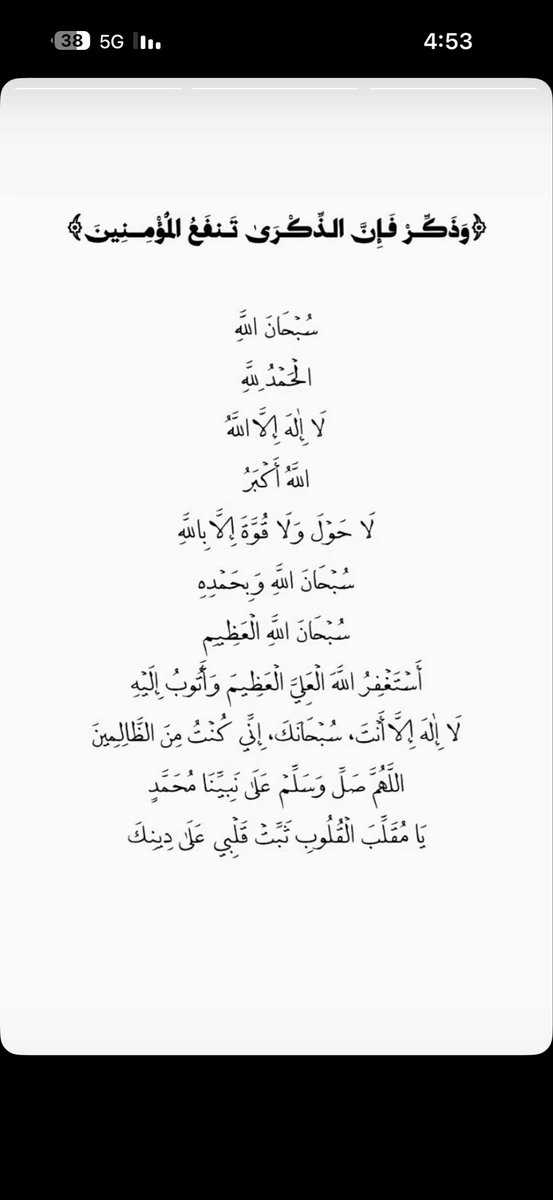 38 5G 4:53
﴿وَذَكِّرْ فَإِنَّ الذِّكْرَىٰ تَنفَعُ الْمُؤْمِنِينَ﴾
سُبْحَانَ اللَّهِ
الْحَمْدُ لِلَّهِ
لَا إِلٰهَ إِلَّا اللَّهُ
اللَّهُ أَكْبَرُ
لَا حَوْلَ وَلَا قُوَّةَ إِلَّا بِاللَّهِ
سُبْحَانَ اللَّهِ وَبِحَمْدِهِ
سُبْحَانَ اللَّهِ الْعَظِيمِ
أَسْتَغْفِرُ اللَّهَ الْعَلِيَّ الْعَظِيمَ وَأَتُوبُ إِلَيْهِ
لَا إِلٰهَ إِلَّا أَنْتَ، سُبْحَانَكَ، إِنِّي كُنْتُ مِنَ الظَّالِمِينَ
اللَّهُمَّ صَلِّ وَسَلِّمْ عَلَىٰ نَبِيِّنَا مُحَمَّدٍ
يَا مُقَلِّبَ الْقُلُوبِ ثَبِّتْ قَلْبِي عَلَىٰ دِينِكَ